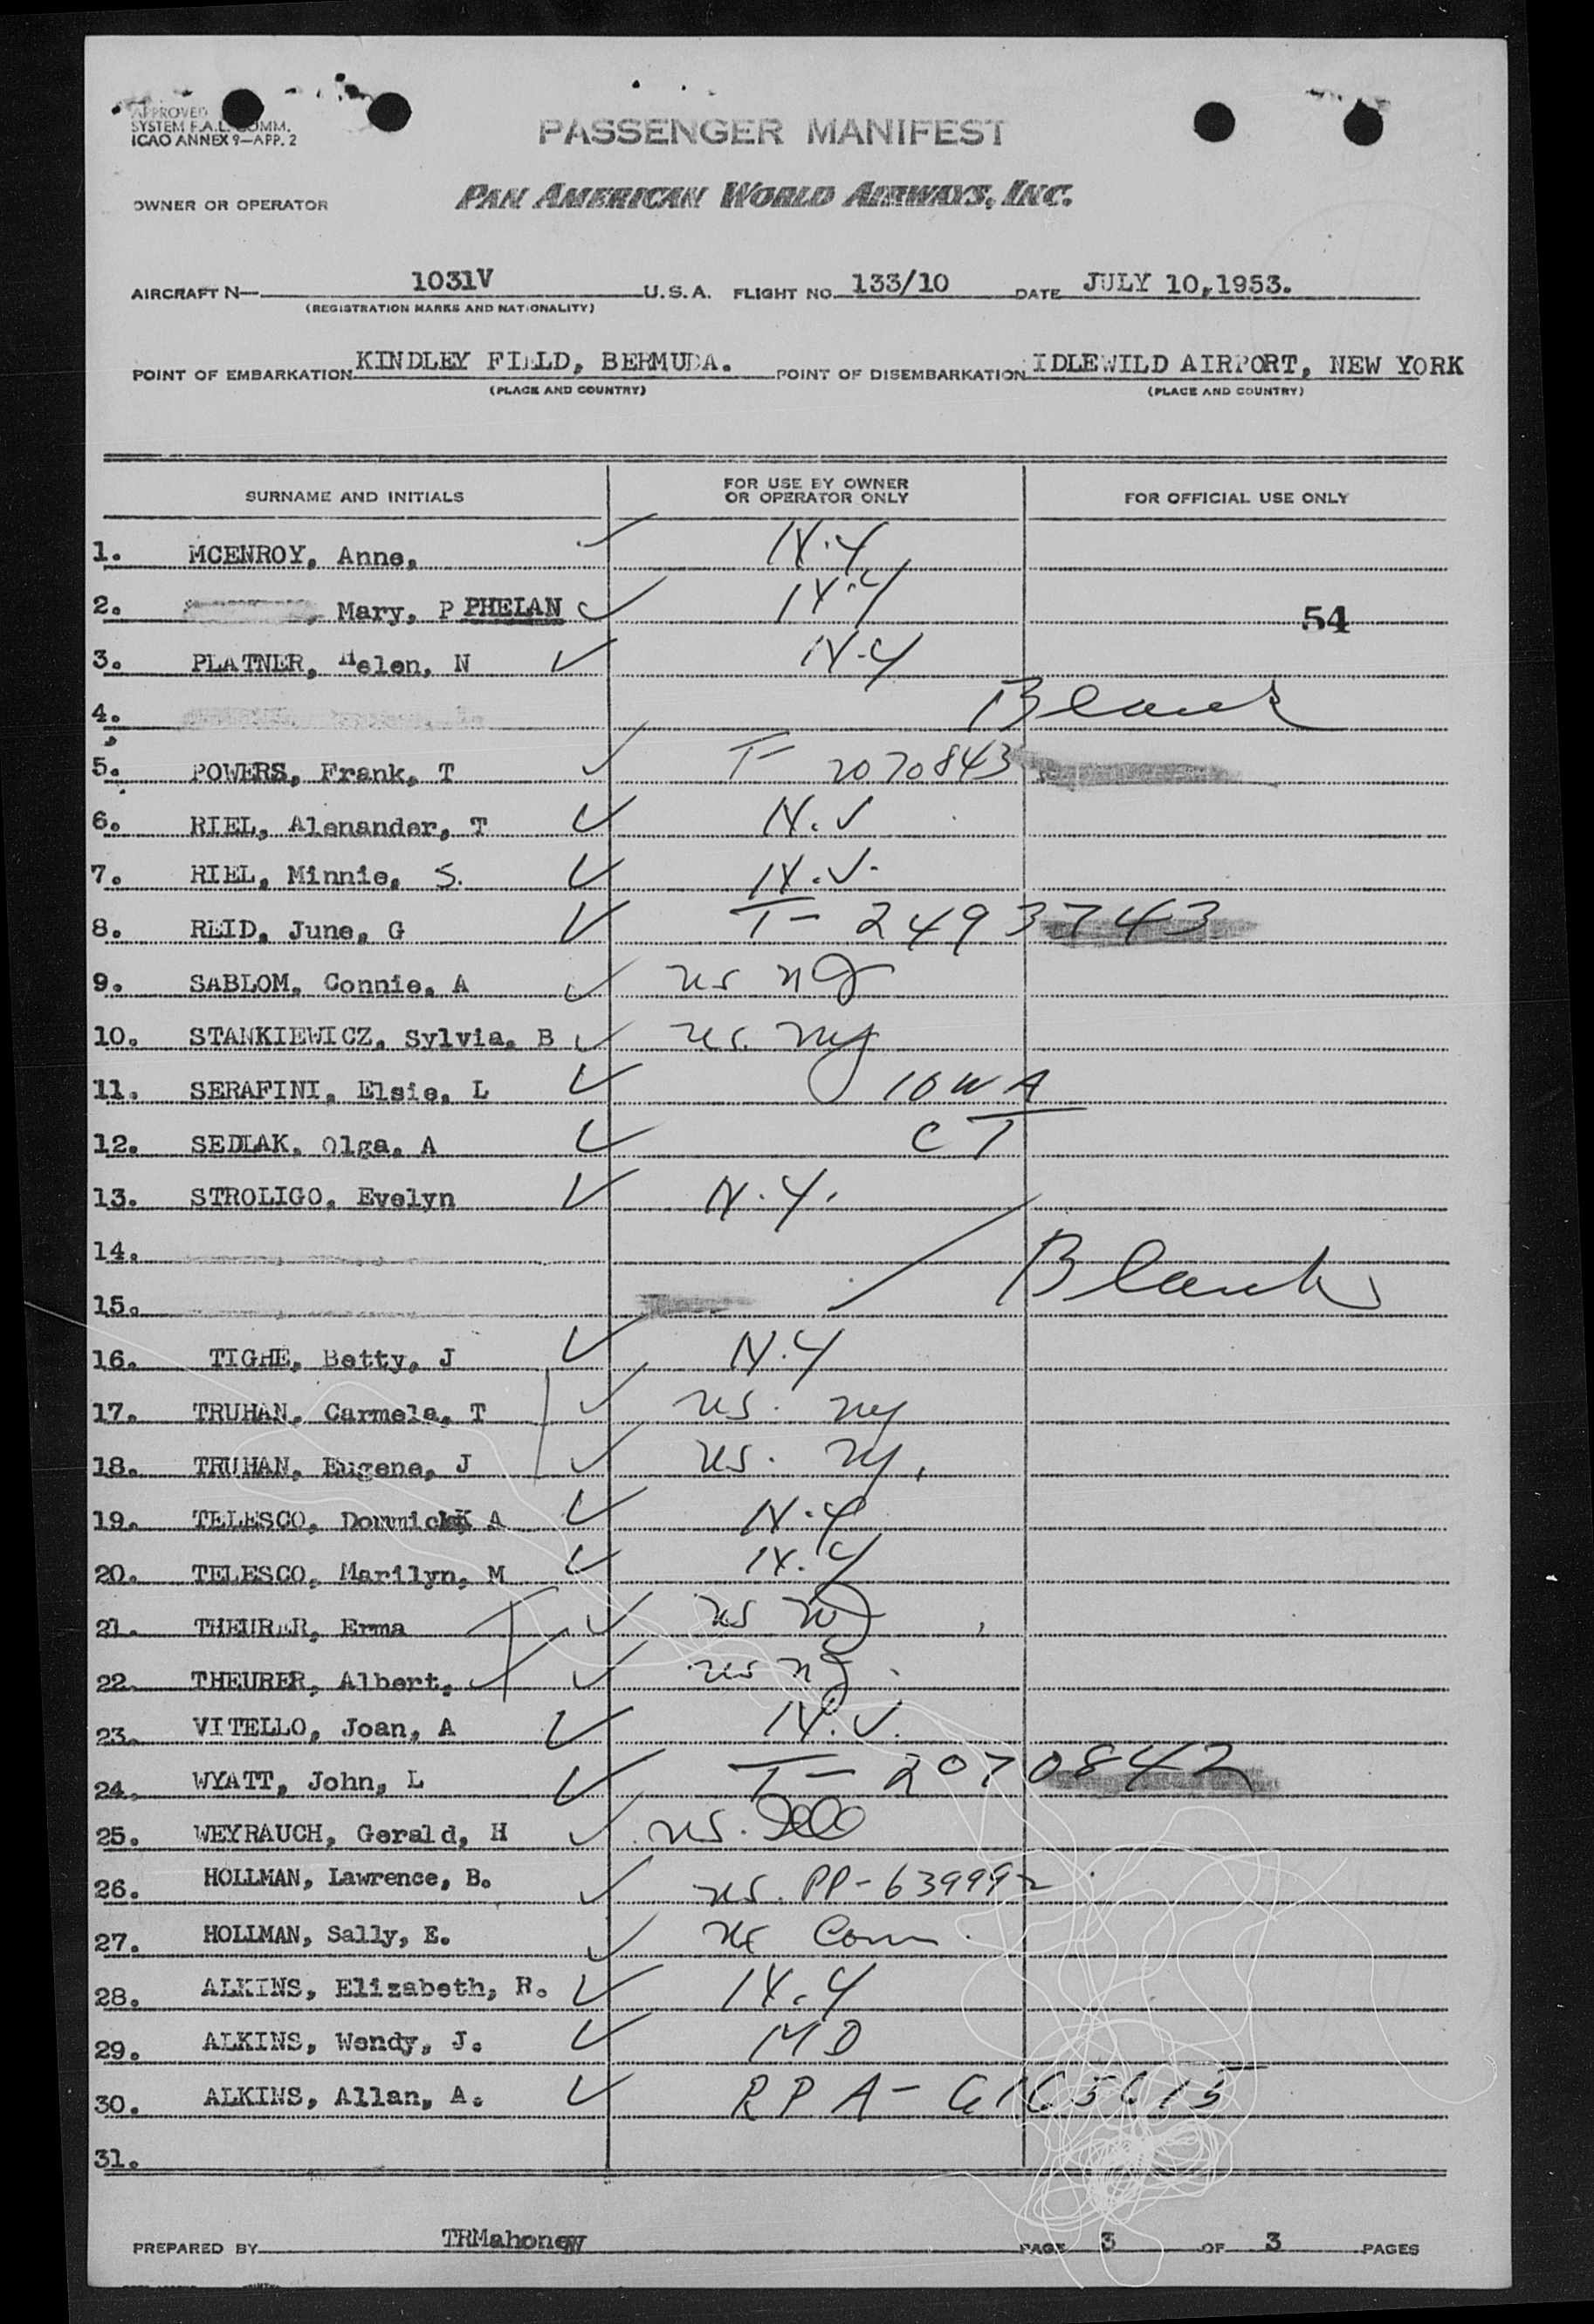 APPROVED
SYSTEM F.A.L. COMM.
ICAO ANNEX 9—APP. 2
PASSENGER MANIFEST
OWNER OR OPERATOR PAN AMERICAN WORLD AIRWAYS, INC.
AIRCRAFT N— 1031V U.S.A. FLIGHT NO. 133/10 DATE JULY 10,1953.
(REGISTRATION MARKS AND NATIONALITY)
POINT OF EMBARKATION KINDLEY FIELD, BERMUDA. POINT OF DISEMBARKATION IDLEWILD AIRPORT, NEW YORK
(PLACE AND COUNTRY) (PLACE AND COUNTRY)
SURNAME AND INITIALS FOR USE BY OWNER OR OPERATOR ONLY FOR OFFICIAL USE ONLY
1. MCENROY, Anne, N.Y
2. , Mary, P PHELAN N.Y 54
3. PLATNER, Helen, N N.Y
4. Blank
5. POWERS, Frank, T T- 2070843
6. RIEL, Alenander, T N.J
7. RIEL, Minnie, S. N.J.
8. REID, June, G T- 2493743
9. SABLOM, Connie, A us nJ
10. STANKIEWICZ, Sylvia, B us. ny
11. SERAFINI, Elsie, L IOWA
12. SEDLAK, Olga, A CT
13. STROLIGO, Evelyn N.Y.
14.
15. Blank
16. TIGHE, Betty, J N.Y
17. TRUHAN, Carmela, T us. ny
18. TRUHAN, Eugene, J us. ny.
19. TELESCO, A N.Y
20. TELESCO, Marilyn, M N.Y
21. THEURER, Erma us nJ
22. THEURER, Albert, us nJ
23. VITELLO, Joan, A N.J.
24. WYATT, John, L T- 2070842
25. WEYRAUCH, Gerald, H us. Ill
26. HOLLMAN, Lawrence, B. us. PP-639992
27. HOLLMAN, Sally, E. us Conn
28. ALKINS, Elizabeth, R. N.Y
29. ALKINS, Wendy, J. MD
30. ALKINS, Allan, A. RPA-
31.
PREPARED BY TRMahoney PAGE 3 OF 3 PAGES